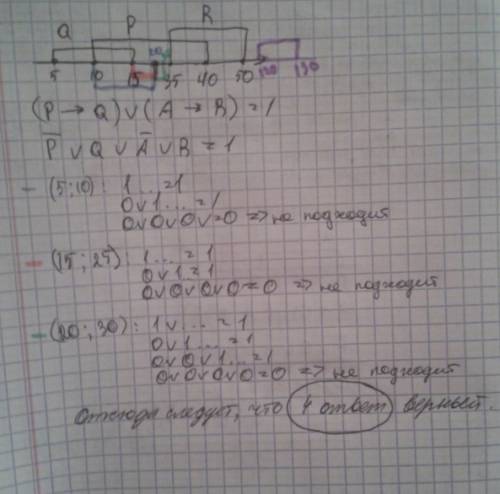 Q P R
5 10 15 35 40 50 120 130
(P → Q) ∨ (A → R) = 1
P̅ ∨ Q ∨ A̅ ∨ R = 1
— (5;10): 1 ... = 1
0∨1 ... = 1
0∨0∨0∨=0 => не подходит
— (15;25): 1 ... = 1
0∨1 = 1
0∨0∨0∨0=0 => не подходит
— (20;30): 1∨ ... = 1
0∨1 ... = 1
0∨0∨1 ... = 1
0∨0∨0∨0=0 => не подходит
отсюда следует, что 4 ответ верный.